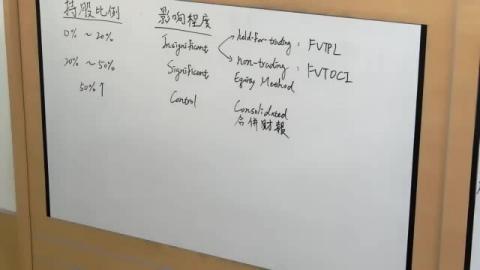 持股比例 影响程度
0% ~ 20% Insignificant held-for-trading : FVTPL
non-trading : FVTOCI
20% ~ 50% Significant Equity Method
50%↑ Control Consolidated
合併財報